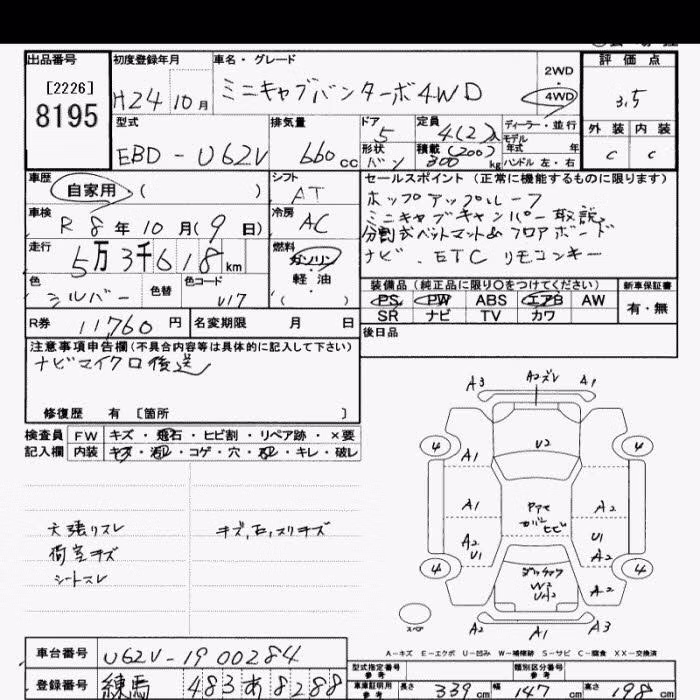 出品番号
[2226]
8195
初度登録年月
H24 10月
車名・グレード
ミニキャブバンターボ4WD
2WD
・
4WD
評価点
3.5
外装 内装
C C
型式
EBD-U62V
排気量
660cc
ドア
5
形状
バン
定員
4(2)人
積載 (200)
300kg
ディーラー・並行
モデル
年式 年
ハンドル 左・右
車歴
自家用 ( )
シフト
AT
車検
R 8年10月(9日)
冷房
AC
走行
5万3千618km
燃料
ガソリン
軽油
( )
色
シルバー
色替
色コード
U17
R券 11760円
名変期限 月 日
セールスポイント(正常に機能するものに限ります)
ホップアップルーフ
ミニキャブキャンパー取説
分割式ベットマット&フロアボード
ナビ、ETC リモコンキー
装備品(純正品に限り○をつけてください)
PS PW ABS エアB AW
SR ナビ TV カワ
新車保証書
有・無
後日品
注意事項申告欄(不具合内容等は具体的に記入して下さい)
ナビマイクロ後送
修復歴 有 [箇所 ]
検査員
記入欄
FW キズ・飛石・ヒビ割・リペア跡・×要
内装 キズ・汚レ・コゲ・穴・スレ・キレ・破レ
天張りスレ
荷室キズ
シートスレ
キズ,石,スリキズ
A3 A2ズレ A1
4 4
A1 U2
A1 A2
A2 U1
U1 A2
4 4
A2
W2
A2 A1 A3
スペア
A-キズ E-エクボ U-凹み W-補修跡 S-サビ C-腐食 XX-交換済
車台番号 U62V-1900284
登録番号 練馬 483 あ 8288
型式指定番号
参考
類別区分番号
参考
車庫証明用
参考
長さ 339cm 幅 147cm 高さ 198cm